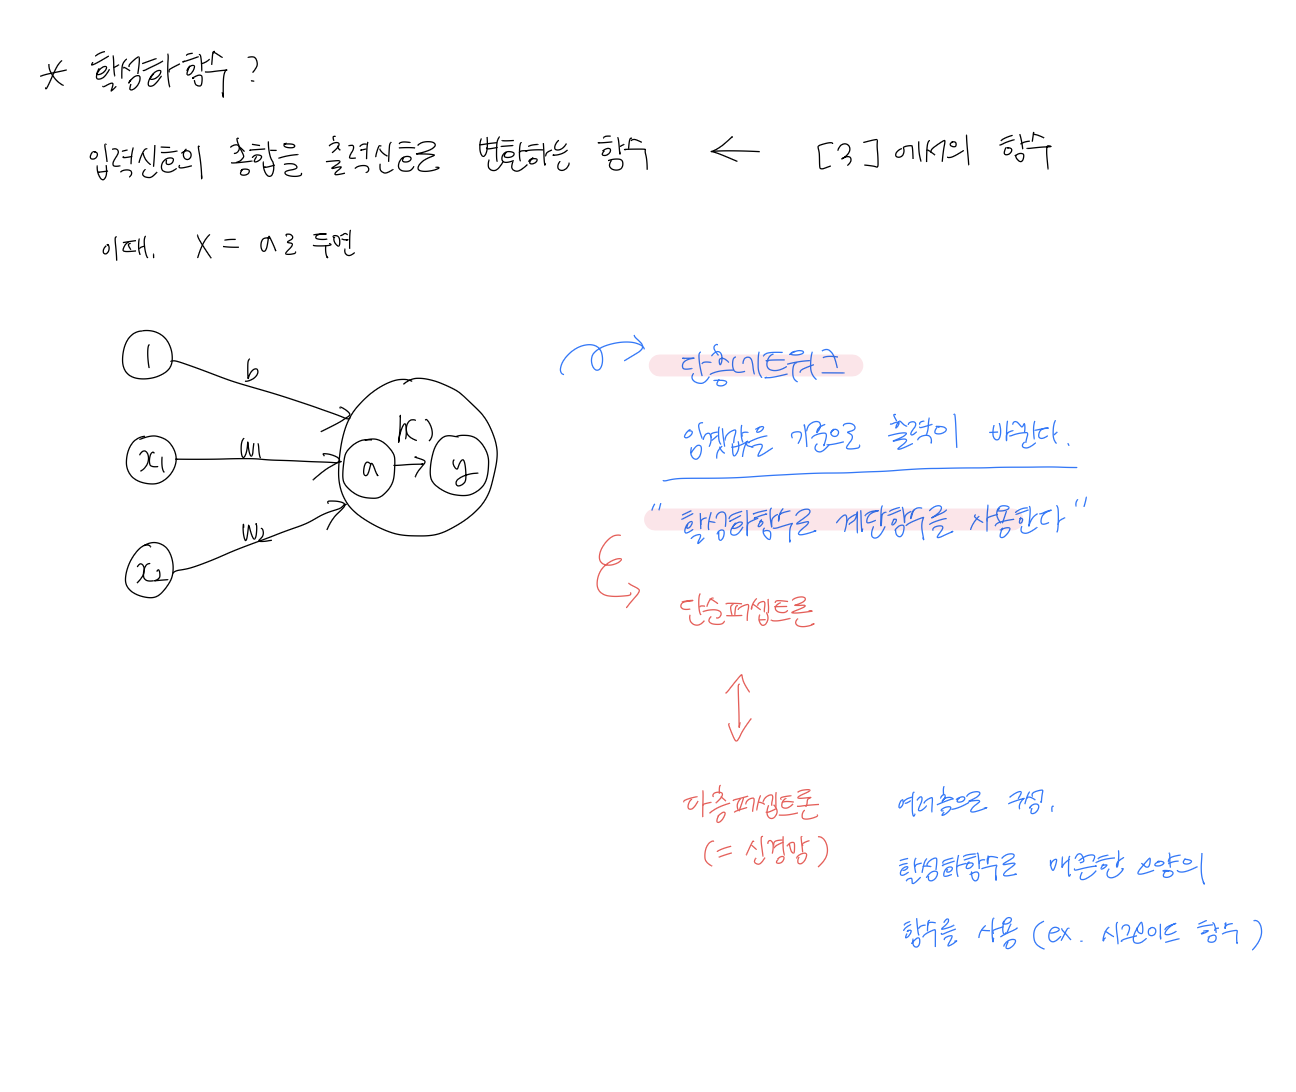 * 활성화함수 ?
입력신호의 총합을 출력신호로 변환하는 함수 ← [3] 에서의 함수
이때, X = a로 두면
1
b
x₁
w₁
x₂
w₂
h( )
a → y
단층네트워크
임계값을 기준으로 출력이 바뀐다.
" 활성화함수로 계단함수를 사용한다 "
단순퍼셉트론
다층퍼셉트론
(= 신경망)
여러층으로 구성.
활성화함수로 매끈한 모양의
함수를 사용 (ex. 시그모이드 함수)